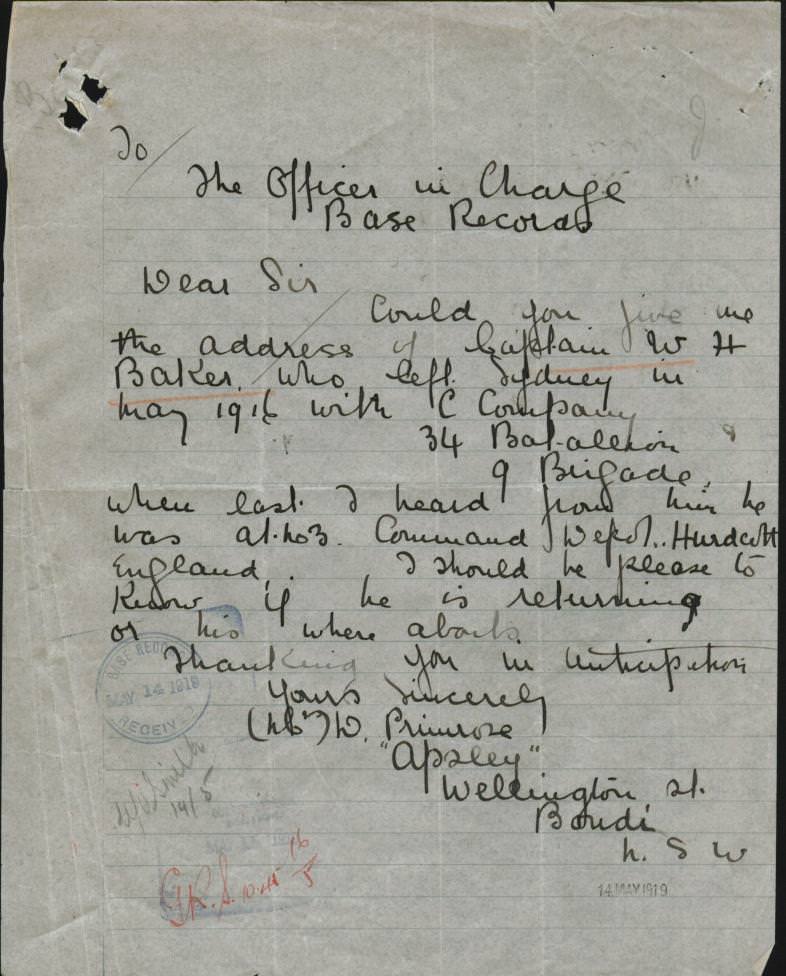 To
The Officer in Charge
Base Records
Dear Sir
Could you give me
the address of Captain W H
Baker, who left Sydney in
May 1916 with C Company
34 Batallion
9 Brigade,
when last I heard from him he
was at No 3. Command Depot. Hurdcott
England. I should be please to
Know if he is returning
or his where abouts
Thanking you in anticipation
Yours Sincerely
D. Primrose
"Apsley"
Wellington St.
Bondi
N. S W
BASE RECORDS
MAY 14 1919
RECEIVED
14/5
16/5
14 MAY 1919